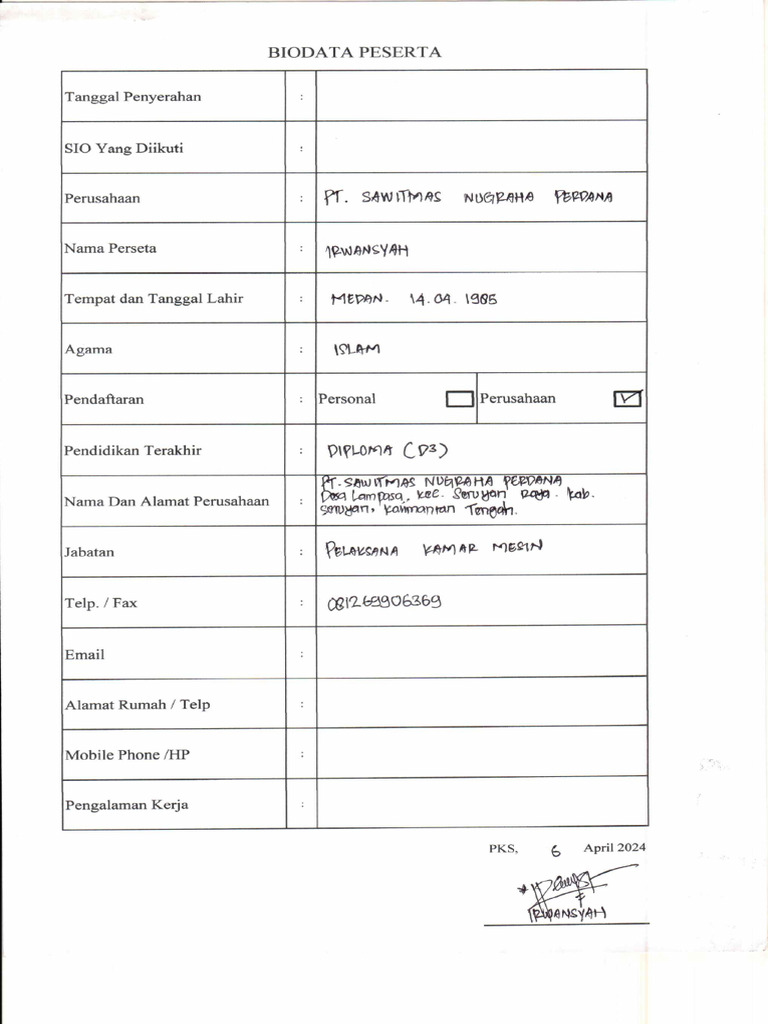 BIODATA PESERTA
Tanggal Penyerahan :
SIO Yang Diikuti :
Perusahaan : PT. SAWITMAS NUGRAHA PERDANA
Nama Perseta : IRWANSYAH
Tempat dan Tanggal Lahir : MEDAN. 14.04.1985
Agama : ISLAM
Pendaftaran : Personal Perusahaan
Pendidikan Terakhir : DIPLOMA (D3)
PT. SAWITMAS NUGRAHA PERDANA
Nama Dan Alamat Perusahaan : Desa Lampasa, kec. Seruyan Raya. kab.
Seruyan, Kalimantan Tengah.
Jabatan : PELAKSANA KAMAR MESIN
Telp. / Fax : 081269906369
Email :
Alamat Rumah / Telp :
Mobile Phone /HP :
Pengalaman Kerja :
PKS, 6 April 2024
IRWANSYAH